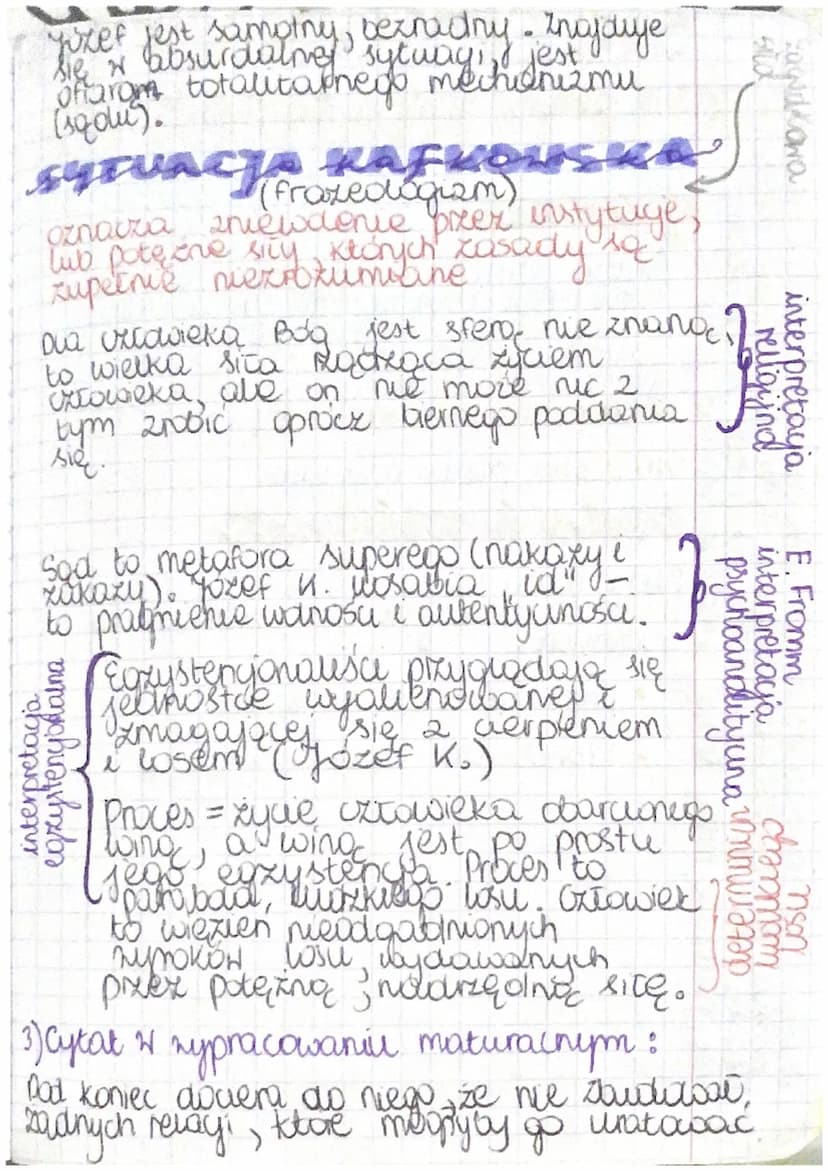 Józef jest samotny, bezradny. Znajduje
się w absurdalnej sytuacji, jest
ofiarom totalitarnego mechanizmu
(sądu).
zagadkowa
siła
SYTUACJA KAFKOWSKA
(frazeologizm)
oznacza zniewolenie przez instytucje,
lub potężne siły, których zasady są
zupełnie niezrozumiane
Dla człowieka Bóg jest sferą nie znaną,
to wielka siła rządząca życiem
człowieka, ale on nie może nic z
tym zrobić oprócz biernego poddania
się.
interpretacja
religijna
Sąd to metafora superego (nakazy i
zakazy). Józef K. uosabia "id" –
to pragnienie wolności i autentyczności.
E. Fromm
interpretacja
psychoanalityczna
interpretacja
egzystencjonalna
Egzystencjonaliści przyglądają się
jednostce wyalienowanej i
zmagającej się z cierpieniem
i losem (Józef K.)
Proces = życie człowieka obarczonego
winą, a winą jest po prostu
jego egzystencja. Proces to
parabola, ludzkiego losu. Człowiek
to więzień nieodgadnionych
wyroków losu, wydawanych
przez potężną, nadrzędną siłę.
determinizm
ludzkiego
losu
3) Cytat w wypracowaniu maturalnym:
Pod koniec dociera do niego, że nie zbudował,
żadnych relacji, które mogłyby go uratować